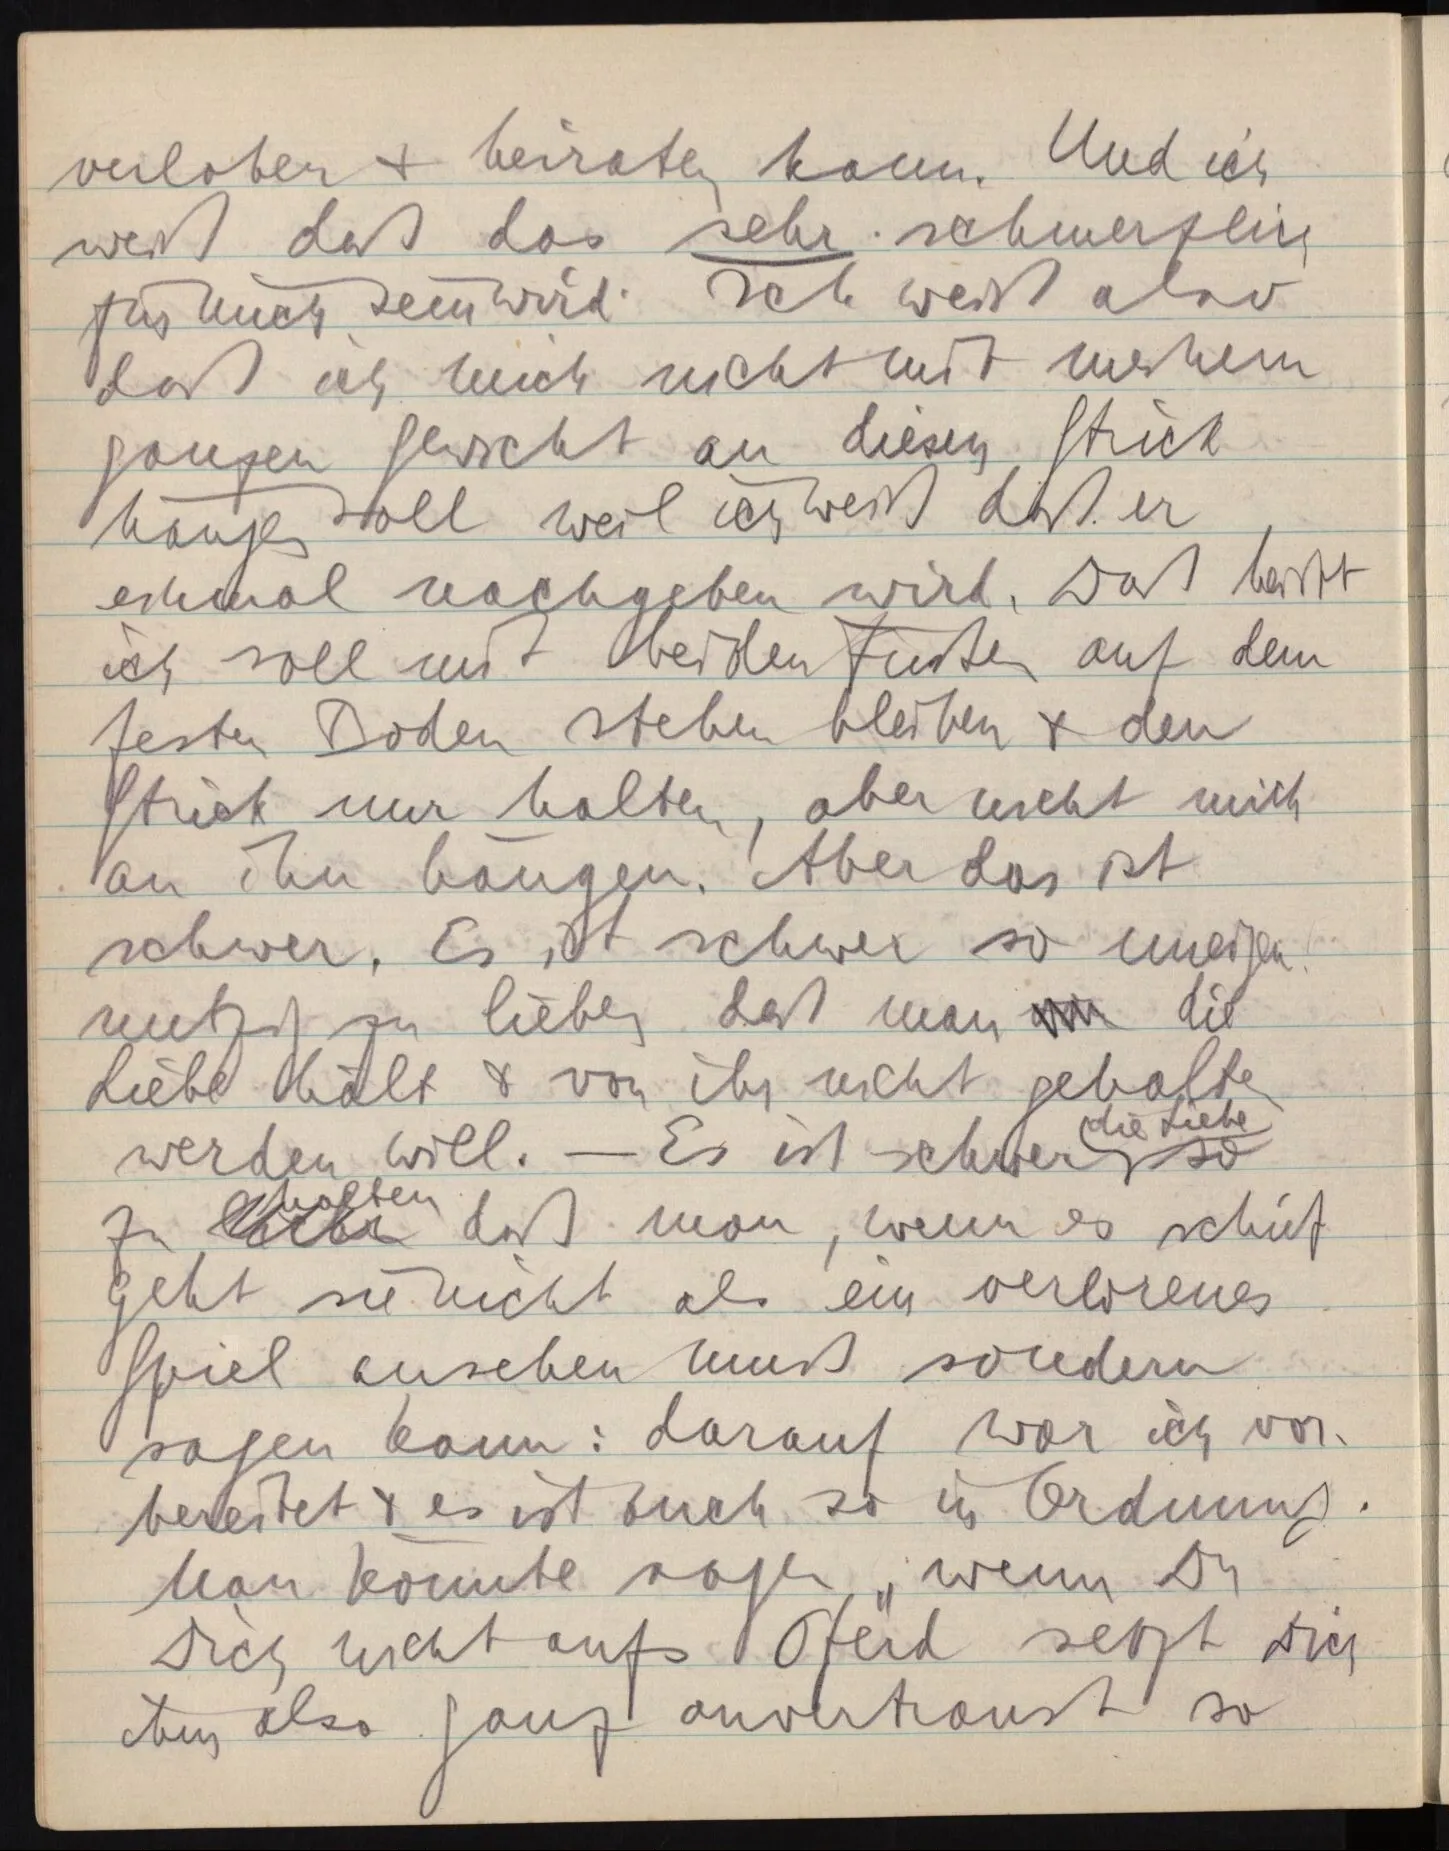 verloben & heiraten kann. Und ich
weiß daß das sehr schmerzlich
für mich sein wird. Ich weiß also
daß ich mich nicht mit meinem
ganzen Gewicht an diesen Strick
hängen soll weil ich weiß daß er
einmal nachgeben wird. Das heißt
ich soll mit beiden Füßen auf dem
festen Boden stehen bleiben & den
Strick nur halten, aber nicht mich
an ihn hängen. Aber das ist
schwer. Es ist schwer so uneigen-
nützig zu lieben daß man die
Liebe hält & von ihr nicht gehalten
werden will. — Es ist schwer die Liebe so
zu halten daß man, wenn es schief
geht sie nicht als ein verlorenes
Spiel ansehen muß sondern
sagen kann: darauf war ich vor-
bereitet & es ist auch so in Ordnung.
Man könnte sagen „wenn Du
Dich nicht aufs Pferd setzt Dich
ihm also ganz anvertraust so